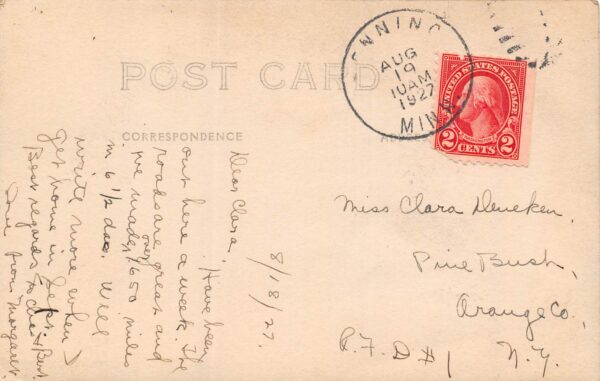 POST CARD
CORRESPONDENCE
ENNING
AUG
19
10AM
1927
MINN.
UNITED STATES POSTAGE
2 CENTS 2
8/18/27.
Dear Clara,
Have been
out here a week. The
roads are great and
we made over 1650 miles
in 6 1/2 das. Will
write more when I
get home in Sept.
Best regards to &
Love from Margaret.
Miss Clara Deneken,
Pine Bush,
Orange Co.,
R. F. D #1 N. Y.